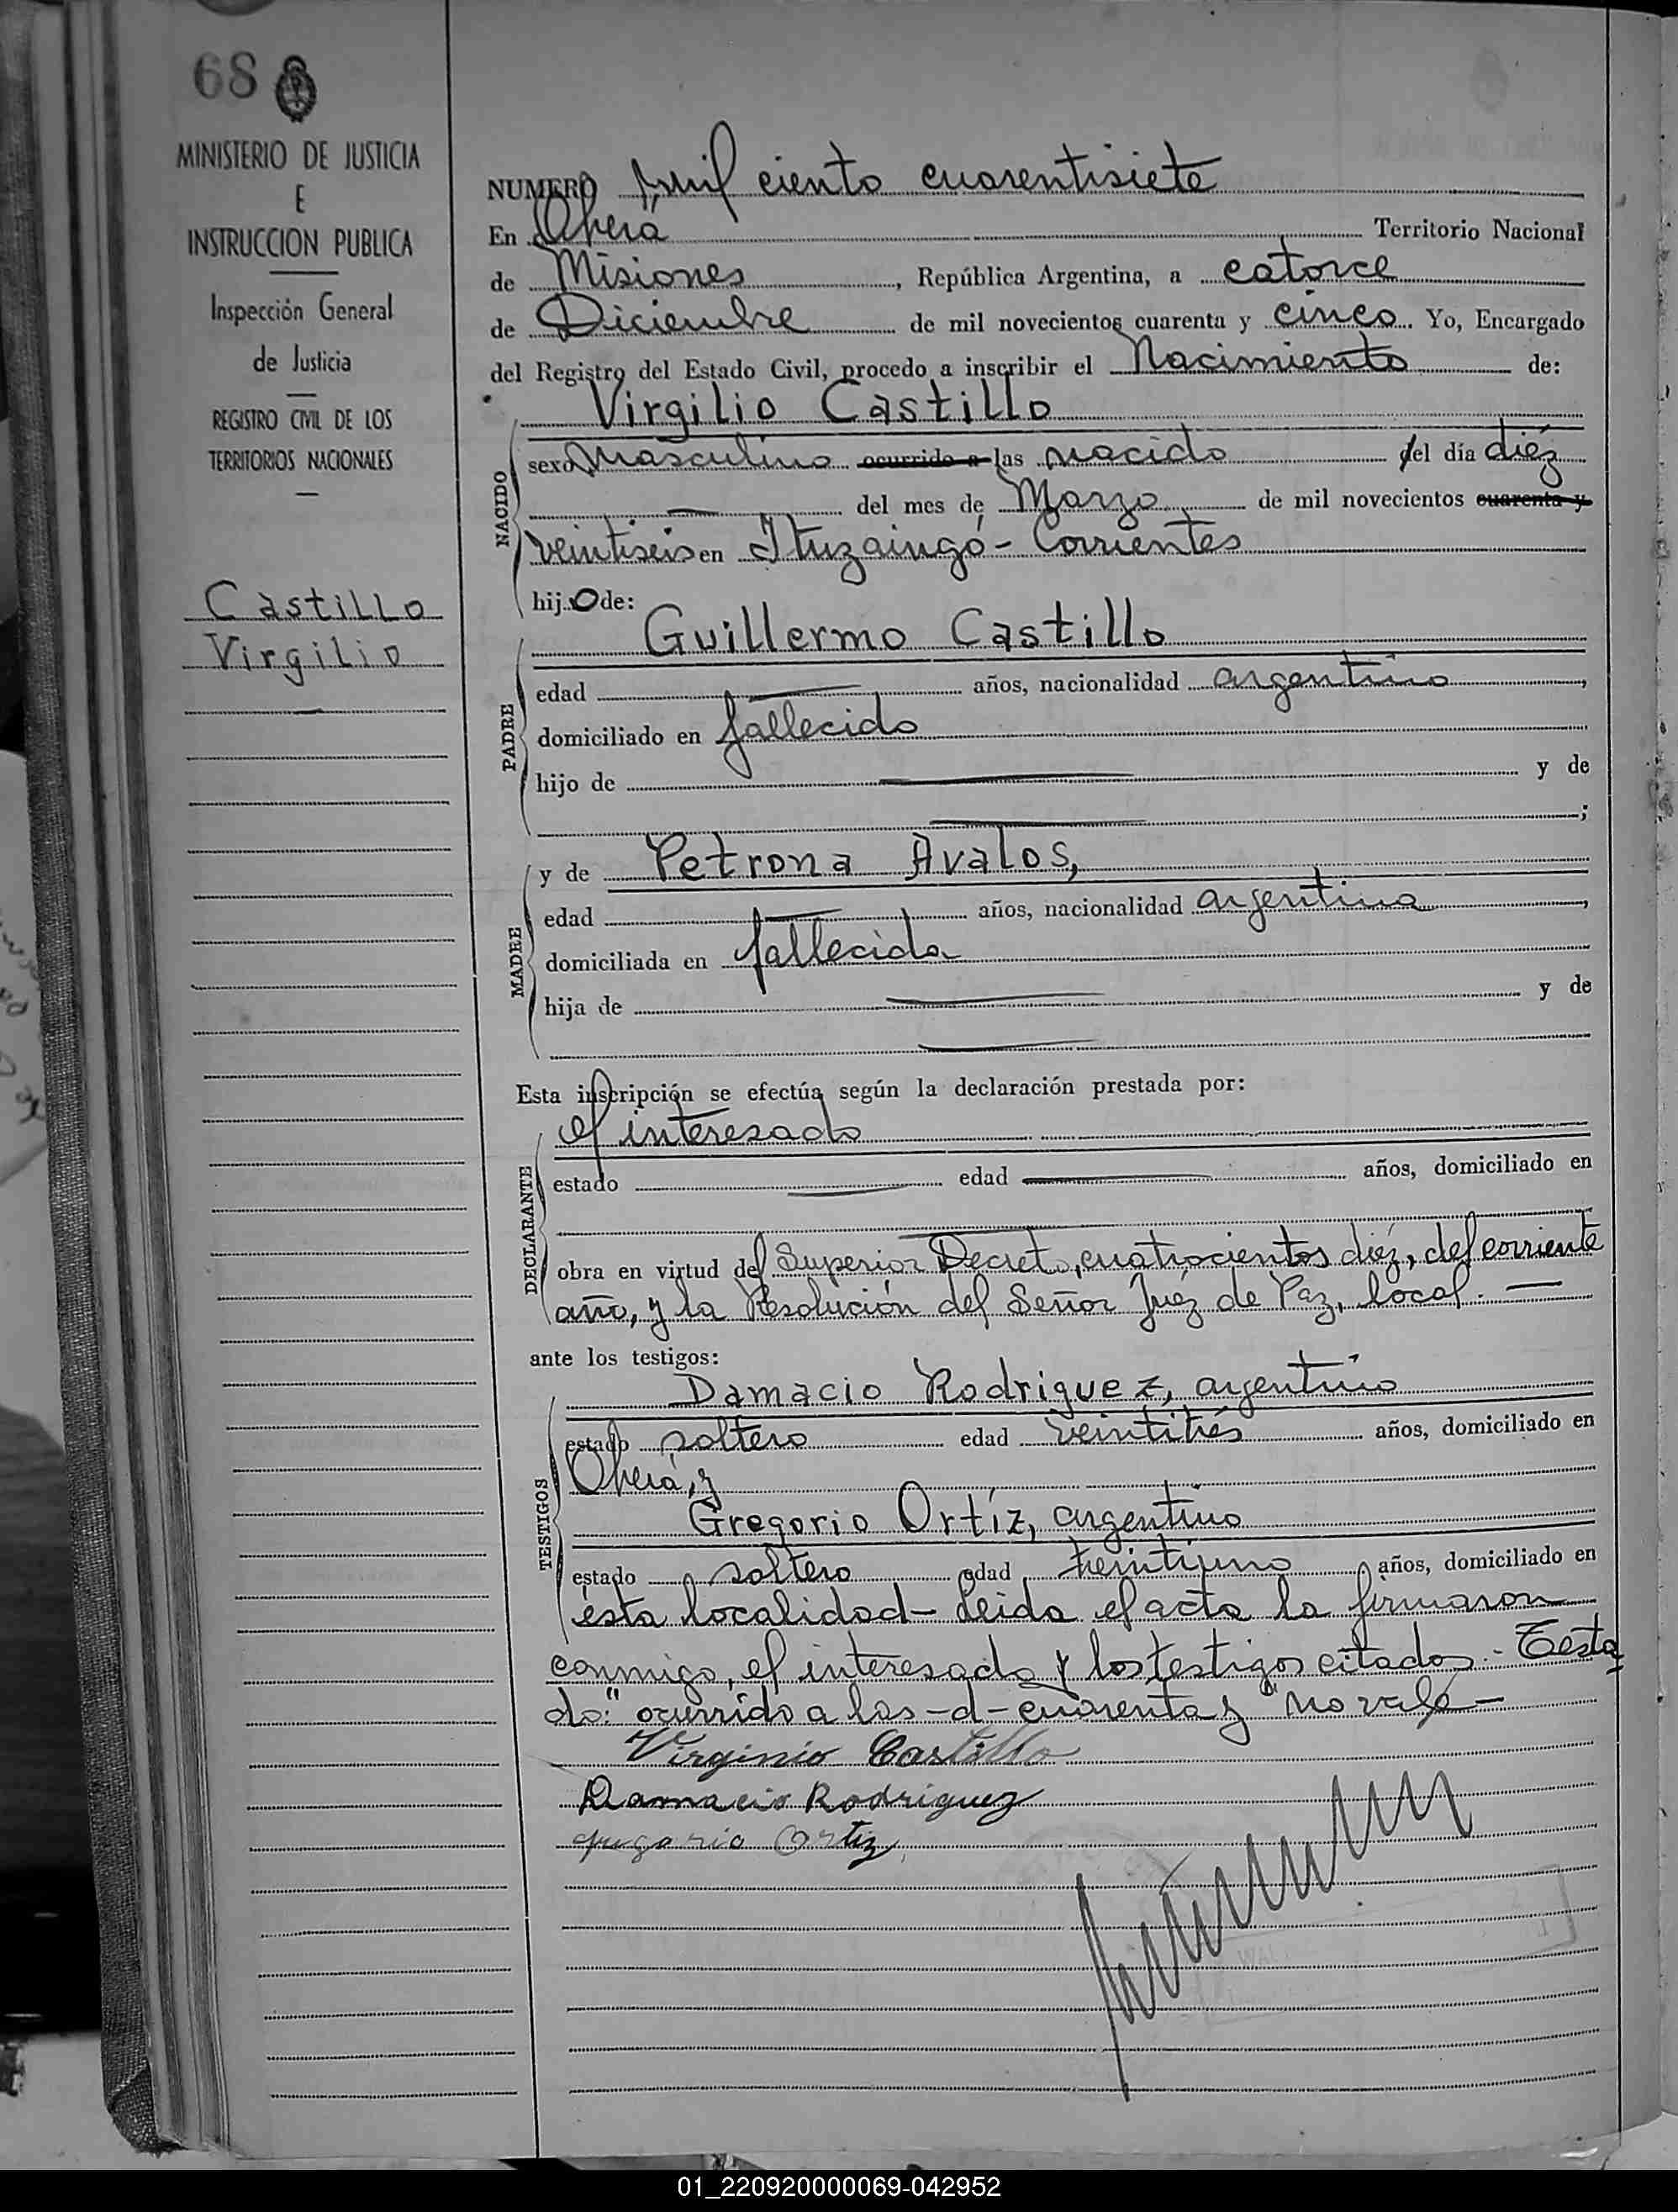 68
MINISTERIO DE JUSTICIA
E
INSTRUCCION PUBLICA
Inspección General
de Justicia
REGISTRO CIVIL DE LOS
TERRITORIOS NACIONALES
Castillo
Virgilio
NUMERO mil ciento cuarentisiete
En Oberá Territorio Nacional
de Misiones, República Argentina, a catorce
de Diciembre de mil novecientos cuarenta y cinco. Yo, Encargado
del Registro del Estado Civil, procedo a inscribir el Nacimiento de:
Virgilio Castillo
NACIDO
sexo Masculino ocurrido a las nacido del día diéz
del mes de Marzo de mil novecientos cuarenta y
veintiseis en Ituzaingó - Corrientes
hijo de:
Guillermo Castillo
PADRE
edad años, nacionalidad argentino,
domiciliado en fallecido
hijo de y de
;
y de Petrona Avalos,
MADRE
edad años, nacionalidad argentina,
domiciliada en fallecida
hija de y de
Esta inscripción se efectúa según la declaración prestada por:
el interesado
DECLARANTE
estado edad años, domiciliado en
obra en virtud del Superior Decreto, cuatrocientos diéz, del corriente
año, y la Resolución del Señor Juéz de Paz, local. —
ante los testigos:
Damacio Rodriguez, argentino
TESTIGOS
estado soltero edad veintitrés años, domiciliado en
Oberá, y
Gregorio Ortíz, argentino
estado soltero edad treintiuno años, domiciliado en
ésta localidad - Leida el acta la firmaron
conmigo, el interesado y los testigos citados. - Testa
do: "ocurrido a las - d - cuarenta y" no vale -
Virginio Castillo
Damacio Rodriguez
Gregorio Ortiz
01_220920000069-042952